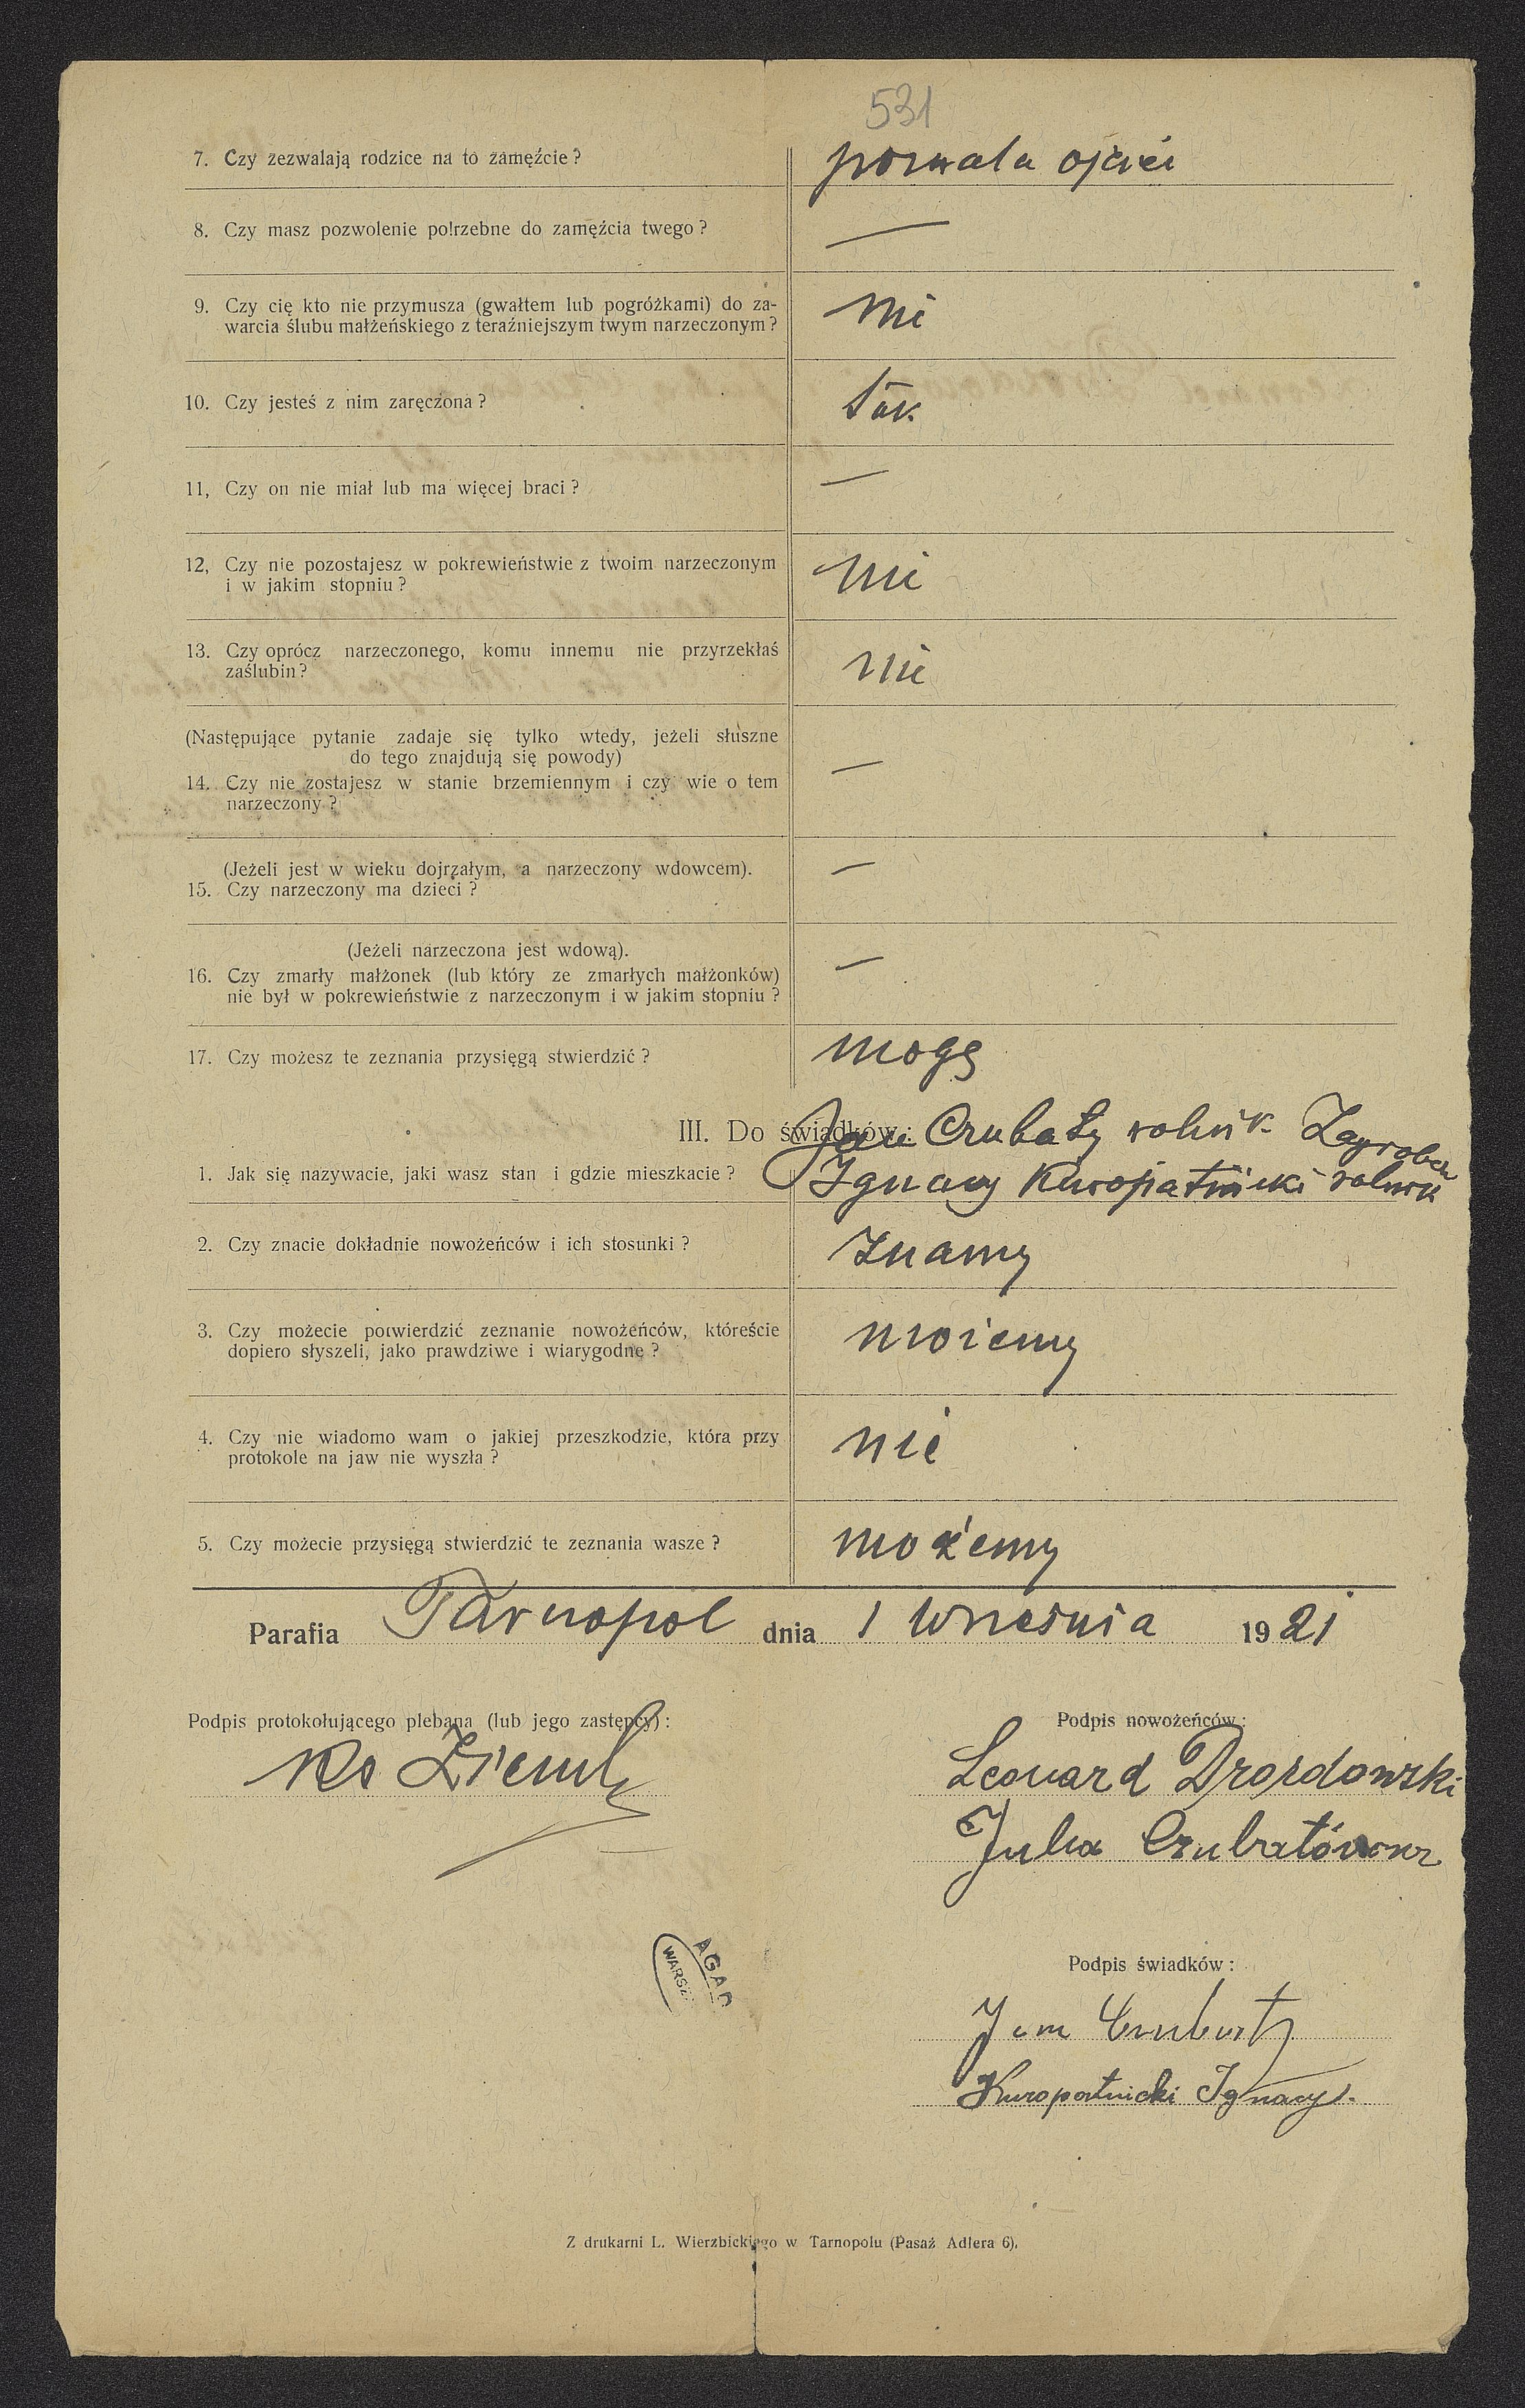 531
7. Czy zezwalają rodzice na to zamęźcie ?
pozwala ojciec
8. Czy masz pozwolenie potrzebne do zamęźcia twego ?
—
9. Czy cię kto nie przymusza (gwałtem lub pogróżkami) do za-
warcia ślubu małżeńskiego z teraźniejszym twym narzeczonym ?
nie
10. Czy jesteś z nim zaręczona ?
tak
11, Czy on nie miał lub ma więcej braci ?
—
12, Czy nie pozostajesz w pokrewieństwie z twoim narzeczonym
i w jakim stopniu ?
nie
13. Czy oprócz narzeczonego, komu innemu nie przyrzekłaś
zaślubin ?
nie
(Następujące pytanie zadaje się tylko wtedy, jeżeli słuszne
do tego znajdują się powody)
14. Czy nie zostajesz w stanie brzemiennym i czy wie o tem
narzeczony ?
—
(Jeżeli jest w wieku dojrzałym, a narzeczony wdowcem).
15. Czy narzeczony ma dzieci ?
—
(Jeżeli narzeczona jest wdową).
16. Czy zmarły małżonek (lub który ze zmarłych małżonków)
nie był w pokrewieństwie z narzeczonym i w jakim stopniu ?
—
17. Czy możesz te zeznania przysięgą stwierdzić ?
mogę
III. Do świadków :
Jan Czubaty rolnik Zagrobela
1. Jak się nazywacie, jaki wasz stan i gdzie mieszkacie ?
Ignacy Kuropatnicki rolnik
2. Czy znacie dokładnie nowożeńców i ich stosunki ?
Znamy
3. Czy możecie potwierdzić zeznanie nowożeńców, któreście
dopiero słyszeli, jako prawdziwe i wiarygodne ?
możemy
4. Czy nie wiadomo wam o jakiej przeszkodzie, która przy
protokole na jaw nie wyszła ?
nie
5. Czy możecie przysięgą stwierdzić te zeznania wasze ?
możemy
Parafia Tarnopol dnia 1 września 1921
Podpis protokołującego plebana (lub jego zastępcy) :
Ks
Podpis nowożeńców :
Leonard Drozdowski
Julia Czubatówna
AGAD
WARSZ
Podpis świadków :
Jan Czubaty
Kuropatnicki Ignacy.
Z drukarni L. Wierzbickiego w Tarnopolu (Pasaż Adlera 6).